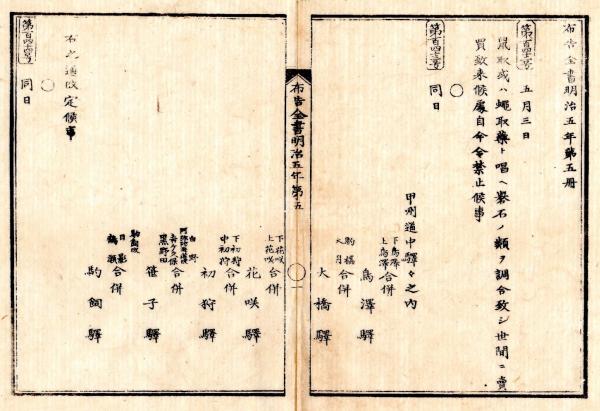 布告全書明治五年第五册
第百四十三号 五月三日
鼠取或ハ蠅取藥ト唱ヘ礜石ノ類ヲ調合致シ世間ニ賣
買致来候處自今令禁止候事
○
第百四十四号 同日
甲州道中驛々之内
下鳥澤
上鳥澤
合併 鳥澤驛
駒橋
大月
合併 大橋驛
布告全書明治五年第五
一
下花咲
上花咲
合併 花咲驛
下初狩
中初狩
合併 初狩驛
白野
黒野田
合併 笹子驛
鶴瀬
合併 駒飼驛
右之通改定候事
○
同日